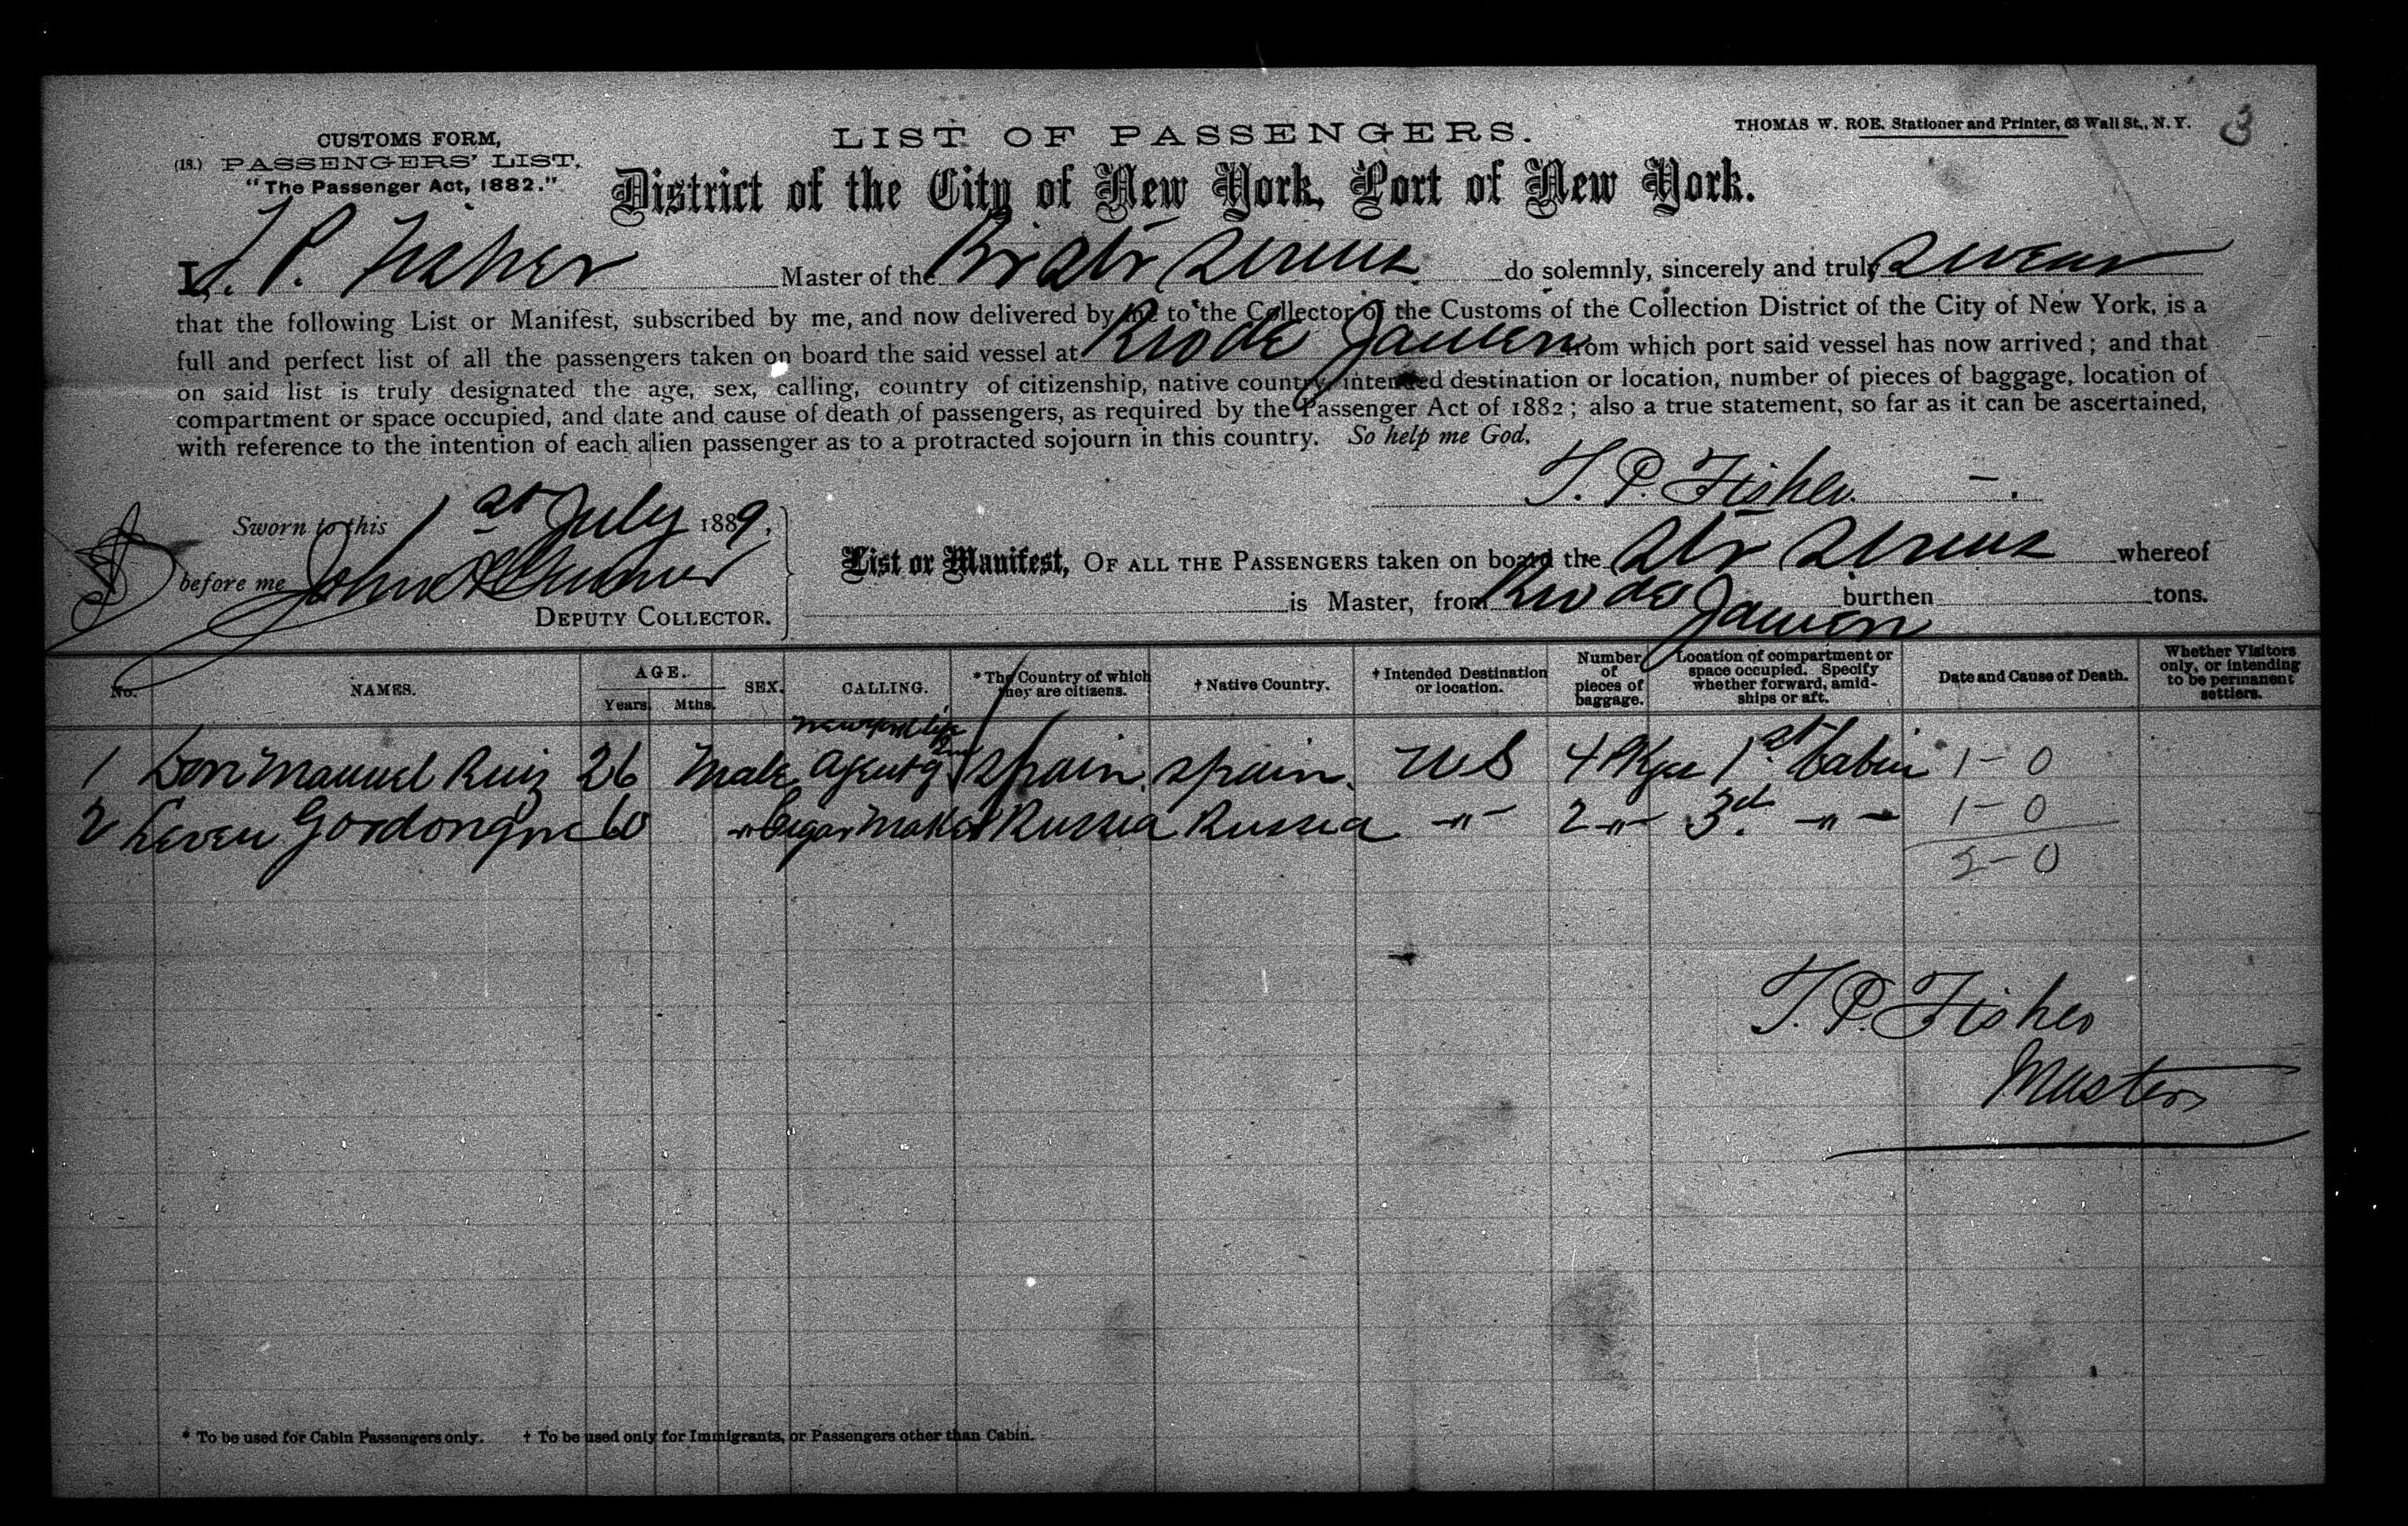 CUSTOMS FORM,
(18.) PASSENGERS' LIST.
"The Passenger Act, 1882."
LIST OF PASSENGERS.
THOMAS W. ROE, Stationer and Printer, 63 Wall St., N.Y.
3
District of the City of New York, Port of New York.
I, T. P. Fisher Master of the Br Str Sirius do solemnly, sincerely and truly swear
that the following List or Manifest, subscribed by me, and now delivered by me to the Collector of the Customs of the Collection District of the City of New York, is a
full and perfect list of all the passengers taken on board the said vessel at Rio de Janeiro from which port said vessel has now arrived; and that
on said list is truly designated the age, sex, calling, country of citizenship, native country, intended destination or location, number of pieces of baggage, location of
compartment or space occupied, and date and cause of death of passengers, as required by the Passenger Act of 1882; also a true statement, so far as it can be ascertained,
with reference to the intention of each alien passenger as to a protracted sojourn in this country. So help me God.
T. P. Fisher.
Sworn to this 1st July 1889.
before me John
DEPUTY COLLECTOR.
List or Manifest, OF ALL THE PASSENGERS taken on board the Str Sirius whereof
is Master, from Rio de Janeiro burthen tons.
No. NAMES. AGE. Years. Mths. SEX. CALLING. *The Country of which they are citizens. † Native Country. † Intended Destination or location. Number of pieces of baggage. Location of compartment or space occupied. Specify whether forward, amidships or aft. Date and Cause of Death. Whether Visitors only, or intending to be permanent settlers.
New York life
1 Don Manuel Ruiz 26 Male Agent Spain Spain. US 4 Pkgs 1st Cabin 1-0
2 Leven 60 " Cigar Maker Russia Russia -"- 2 -"- 3rd. -"- 1-0
2-0
T. P. Fisher
Master
* To be used for Cabin Passengers only. † To be used only for Immigrants, or Passengers other than Cabin.